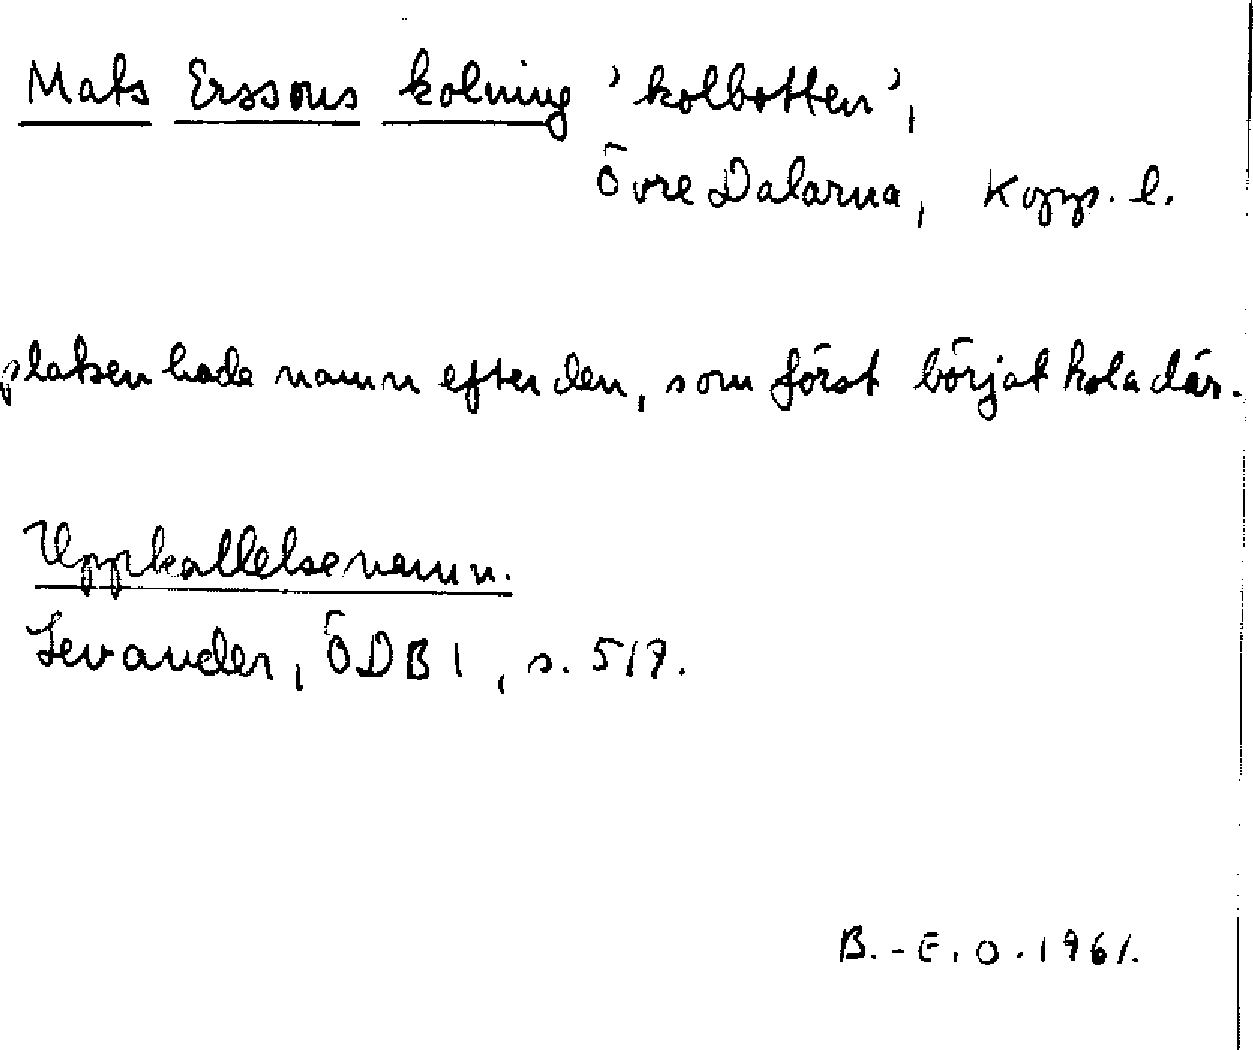 Mats Erssons kolning 'kolbotten',
Övre Dalarna, Kopp. l.
platsen hade namn efter den, som först börjat kola där.
Uppkallelsenamn.
Levander, ÖDB I, s. 517.
B.-E. O. 1961.